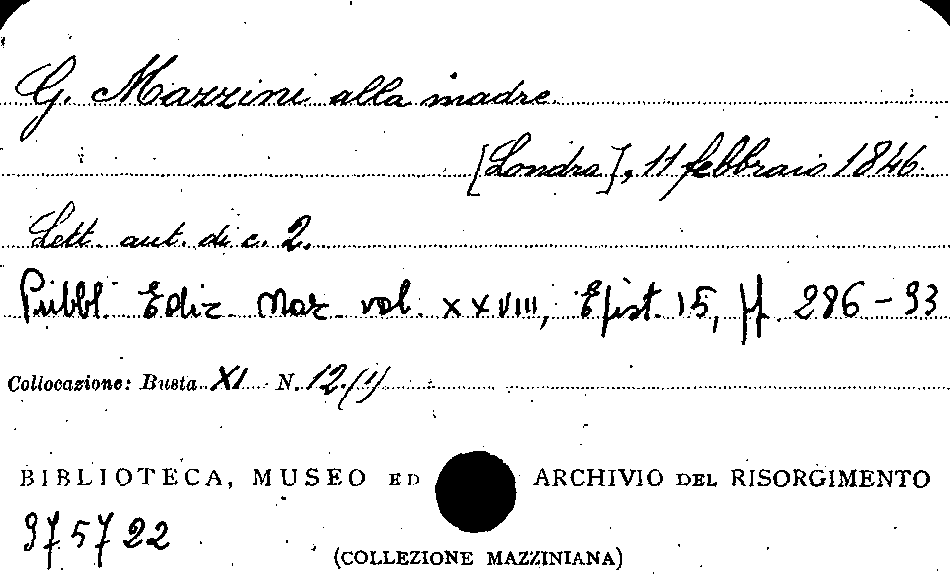 G. Mazzini alla madre
[Londra], 11 febbraio 1846
Lett. aut. di c. 2.
Pubbl. Ediz. Naz. vol. XXVIII, Epist. 15, pp. 286-93
Collocazione: Busta XI N. 12.(1)
BIBLIOTECA, MUSEO ED ARCHIVIO DEL RISORGIMENTO
975722
(COLLEZIONE MAZZINIANA)